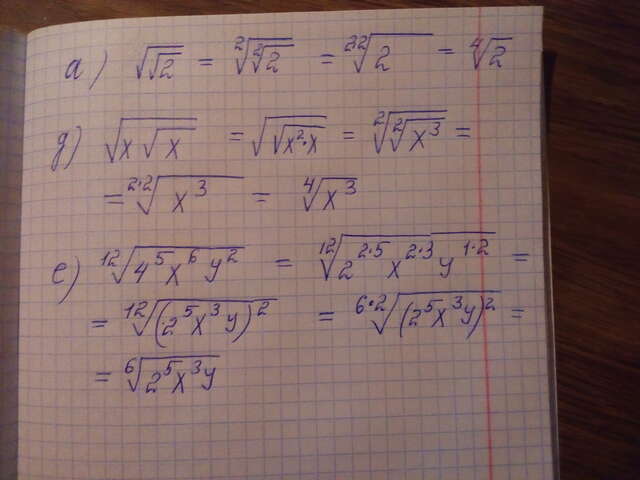 а) √√2 = ²√²√2 = ²·²√2 = ⁴√2
д) √x√x = √√x²·x = ²√²√x³ =
= ²·²√x³ = ⁴√x³
е) ¹²√4⁵x⁶y² = ¹²√2²·⁵x²·³y¹·² =
= ¹²√(2⁵x³y)² = ⁶·²√(2⁵x³y)² =
= ⁶√2⁵x³y